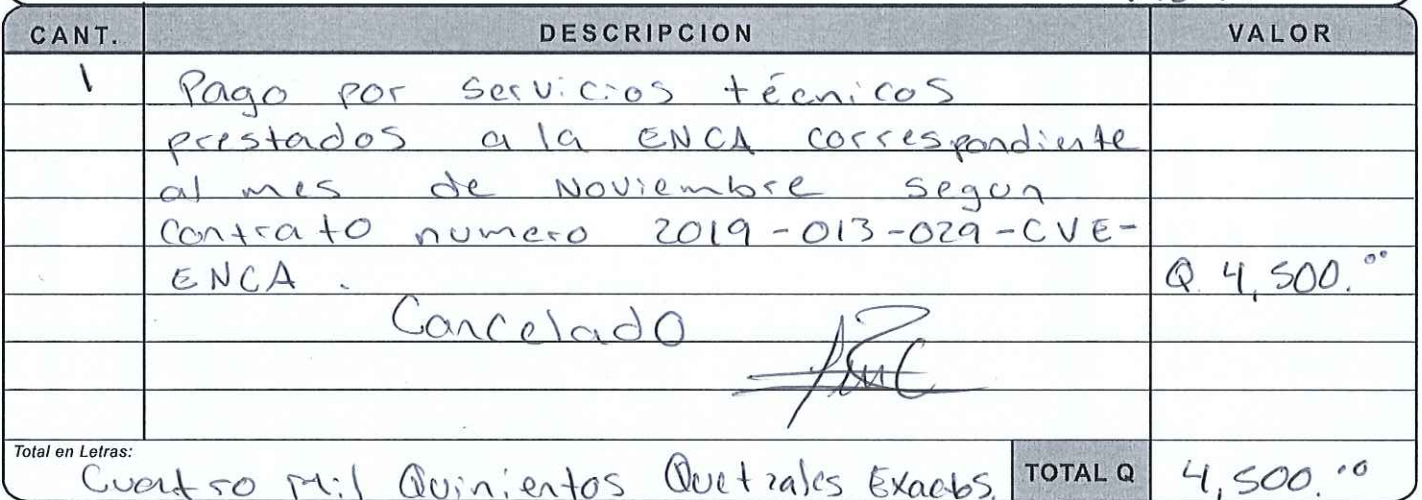 CANT. DESCRIPCION VALOR
1 Pago por servicios técnicos
prestados a la ENCA correspondiente
al mes de Noviembre segun
Contrato numero 2019-013-029-CVE-
ENCA. Q 4,500.00
Cancelado
Total en Letras:
Cuatro Mil Quinientos Quetzales Exactos. TOTAL Q 4,500.00